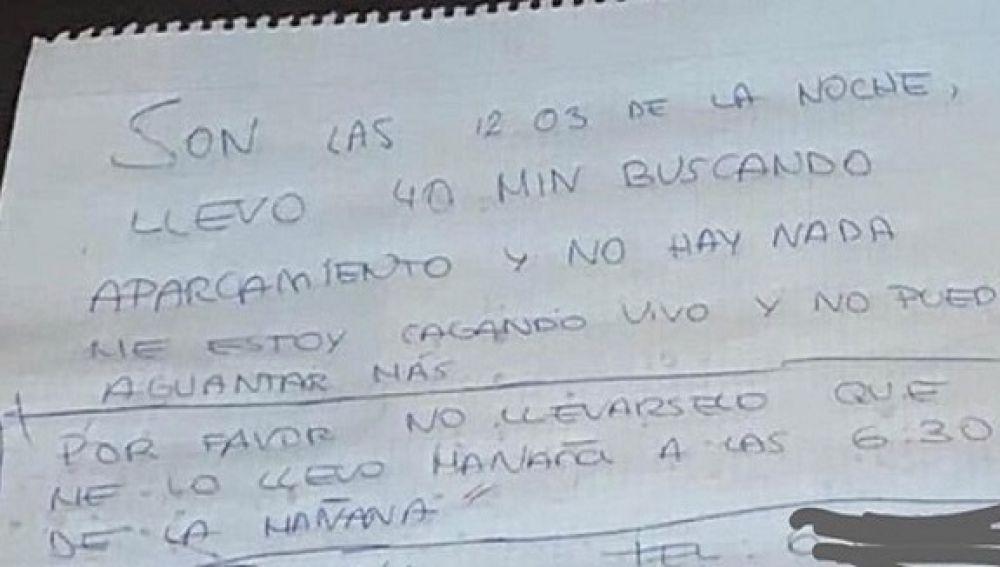 SON LAS 12 03 DE LA NOCHE,
LLEVO 40 MIN BUSCANDO
APARCAMIENTO Y NO HAY NADA
ME ESTOY CAGANDO VIVO Y NO PUED
AGUANTAR MÁS.
POR FAVOR NO LLEVARSELO QUE
ME LO LLEVO MAÑANA A LAS 6:30
DE LA MAÑANA
TEL.